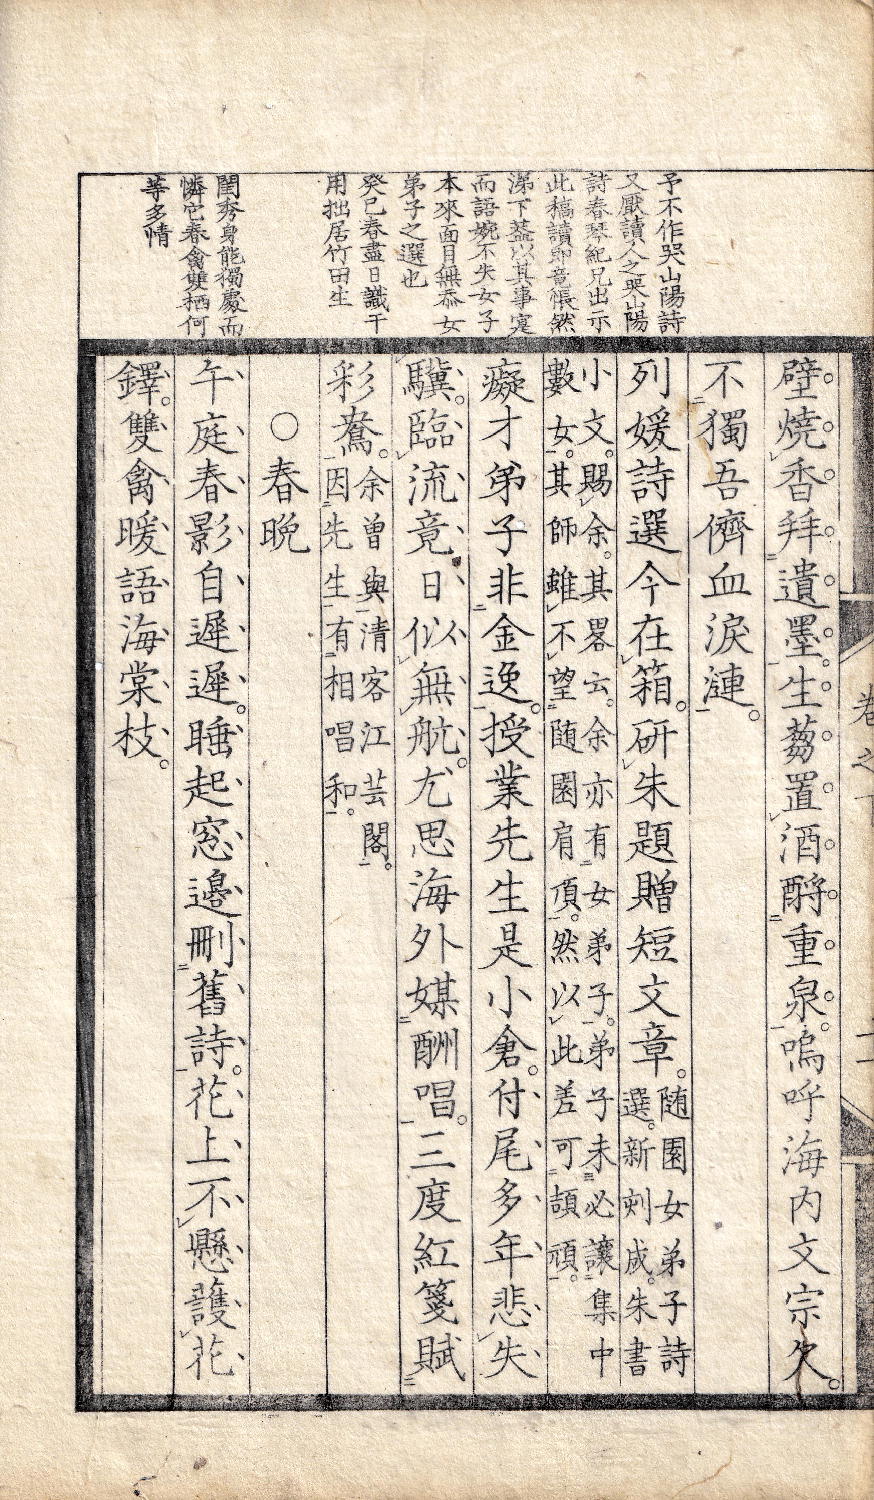 予不作哭山陽詩
又厭讀人之哭山陽
詩春琴紀兄出示
此稿讀即竟悵然
涕下蓋以其事寔
而語婉不失女子
本來面目無忝女
弟子之選也
癸巳春盡日識于
用拙居竹田生
閨秀身能獨處而
憐它春禽雙栖何
等多情
壁燒香拜遺墨生蒭置酒酹重泉嗚呼海内文宗欠
不獨吾儕血淚漣
列媛詩選今在箱研朱題贈短文章
隨園女弟子詩
選新刻成朱書
小文賜余其畧云余亦有女弟子弟子未必讓集中
數女其師雖不望随園肩頂然以此差可頡頏
癡才弟子非金逸授業先生是小倉付尾多年悲失
驥臨流竟日似無航尤思海外媒酬唱三度紅箋賦
彩鴦
余曾與清客江芸閣
因先生有相唱和
○春晩
午庭春影自遲遲睡起窓邊刪舊詩花上不懸護花
鐸雙禽暖語海棠枝
卷之下
二